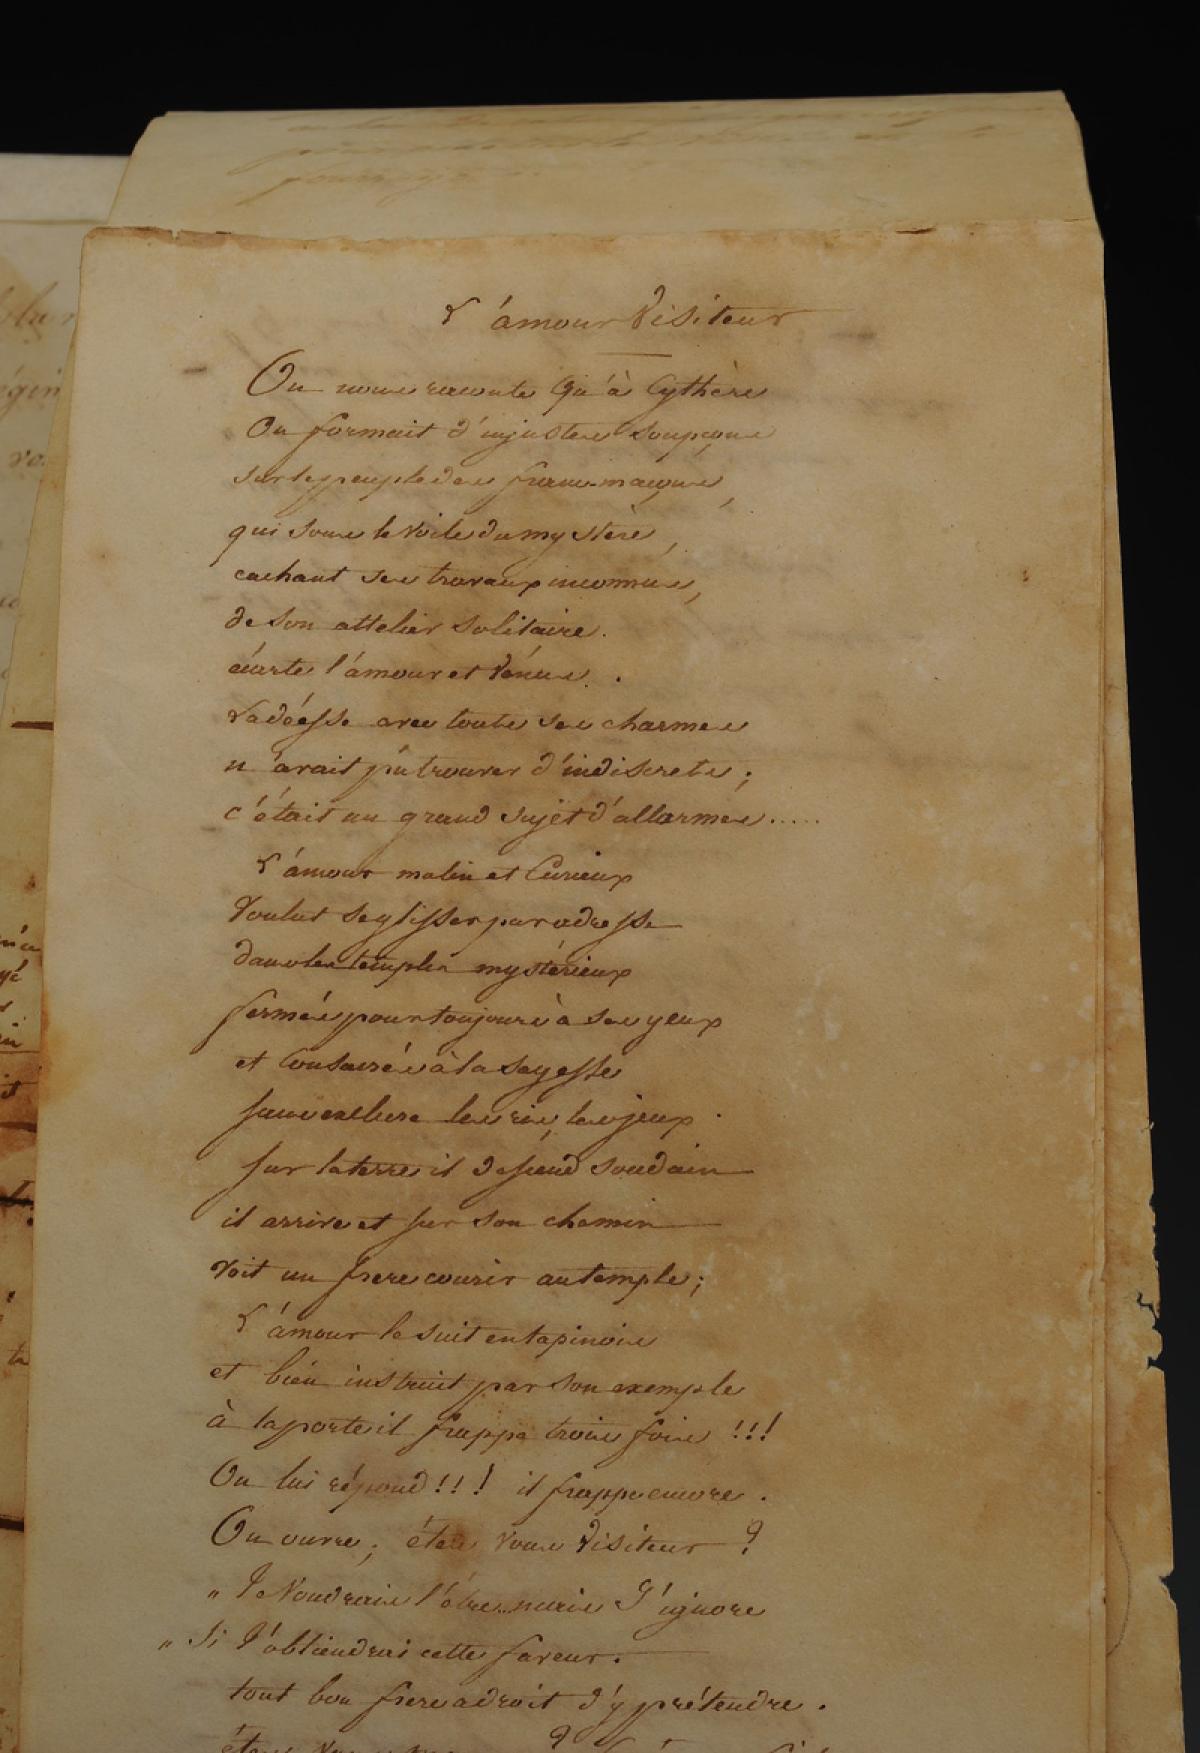 L'ámour Visiteur
On nous raconte Qu'à Cythère
On formait d'injustes soupçons
sur le peuple des francs-maçons,
qui sous le voile du mystère,
cachant ses travaux inconnus,
de son attelier solitaire.
écarte l'ámour et Vénus.
La déesse avec toutes ses charmes
n'avait pu trouver d'indiscrets;
c'était un grand sujet d'allarmes.....
L'ámour malin et Curieux
Voulut se glisser par adresse
dans les temples mystérieux
fermés pour toujours à ses yeux
et Consacrés à la sagesse
sans exclure les ris, les jeux.
sur la terre il descend soudain
il arrive et sur son chemin
Voit un frere courir au temple;
L'ámour le suit en tapinois
et bien instruit par son exemple
à la porte il frappe trois fois !!!
On lui répond !!! il frappe encore.
On ouvre; étes vous Visiteur ?
„ Je Voudrais l'étre... mais J'ignore
„ Si J'obtiendrai cette faveur.
tout bon frere a droit d'y prétendre.